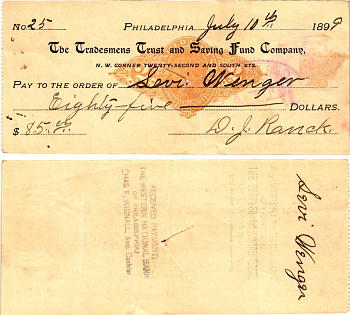 No. 25 Philadelphia, July 10th 1899
The Tradesmens Trust and Saving Fund Company,
N. W. CORNER TWENTY-SECOND AND SOUTH STS.
Pay to the order of Sevi Wenger
Eighty five Dollars.
$85.00 D. J. Ranck.
RECEIVED PAYMENT
THE WESTERN NATIONAL BANK
OF PHILADELPHIA
CHAS. F. WIGNALL, Asst. Cashier
Sevi Wenger